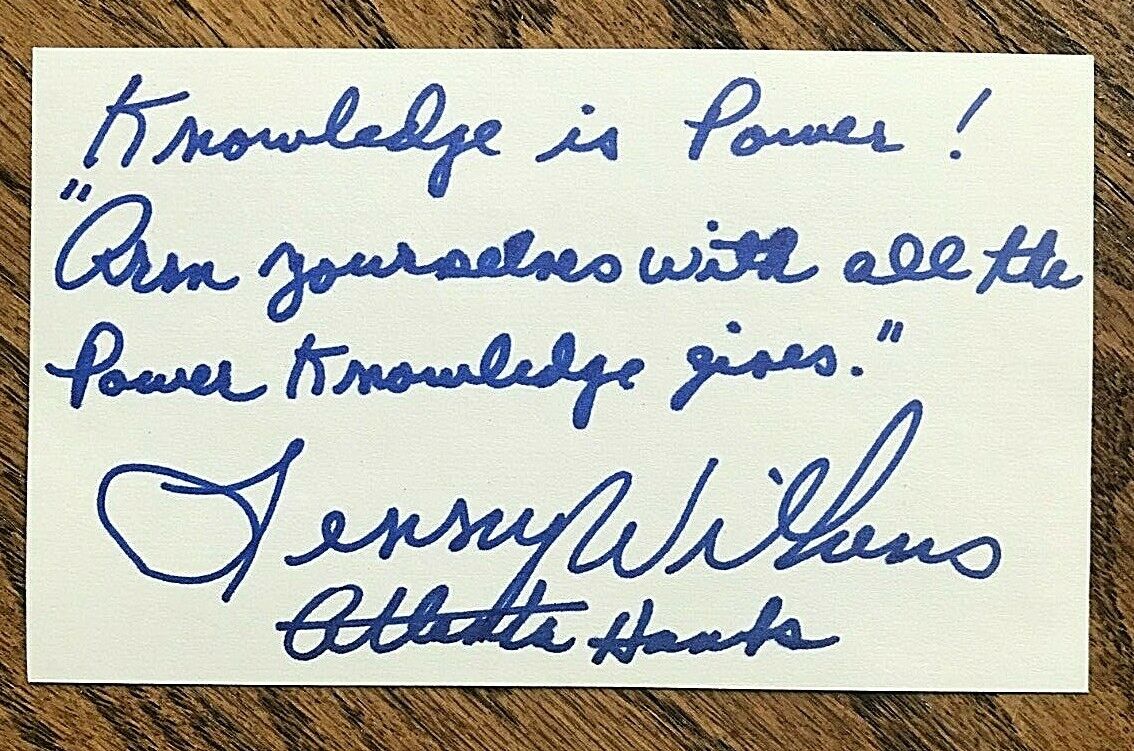 Knowledge is Power!
"Arm yourselves with all the
Power Knowledge gives."
Lenny Wilkens
Atlanta Hawks